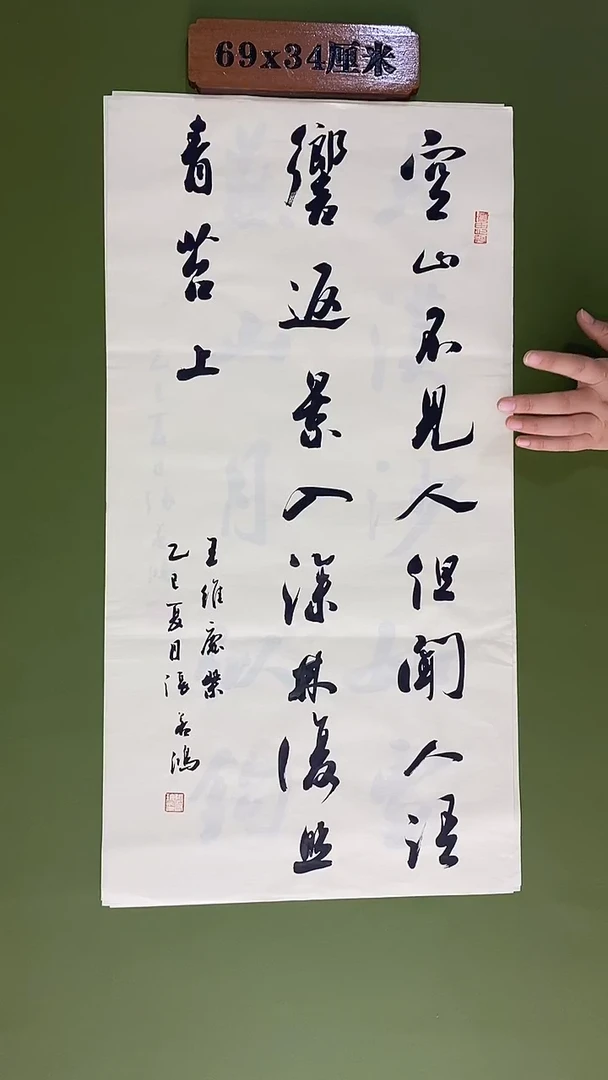 69x34厘米
空山不見人但聞人語
響返景入深林復照
青苔上
王維鹿柴
乙巳夏日張善鴻